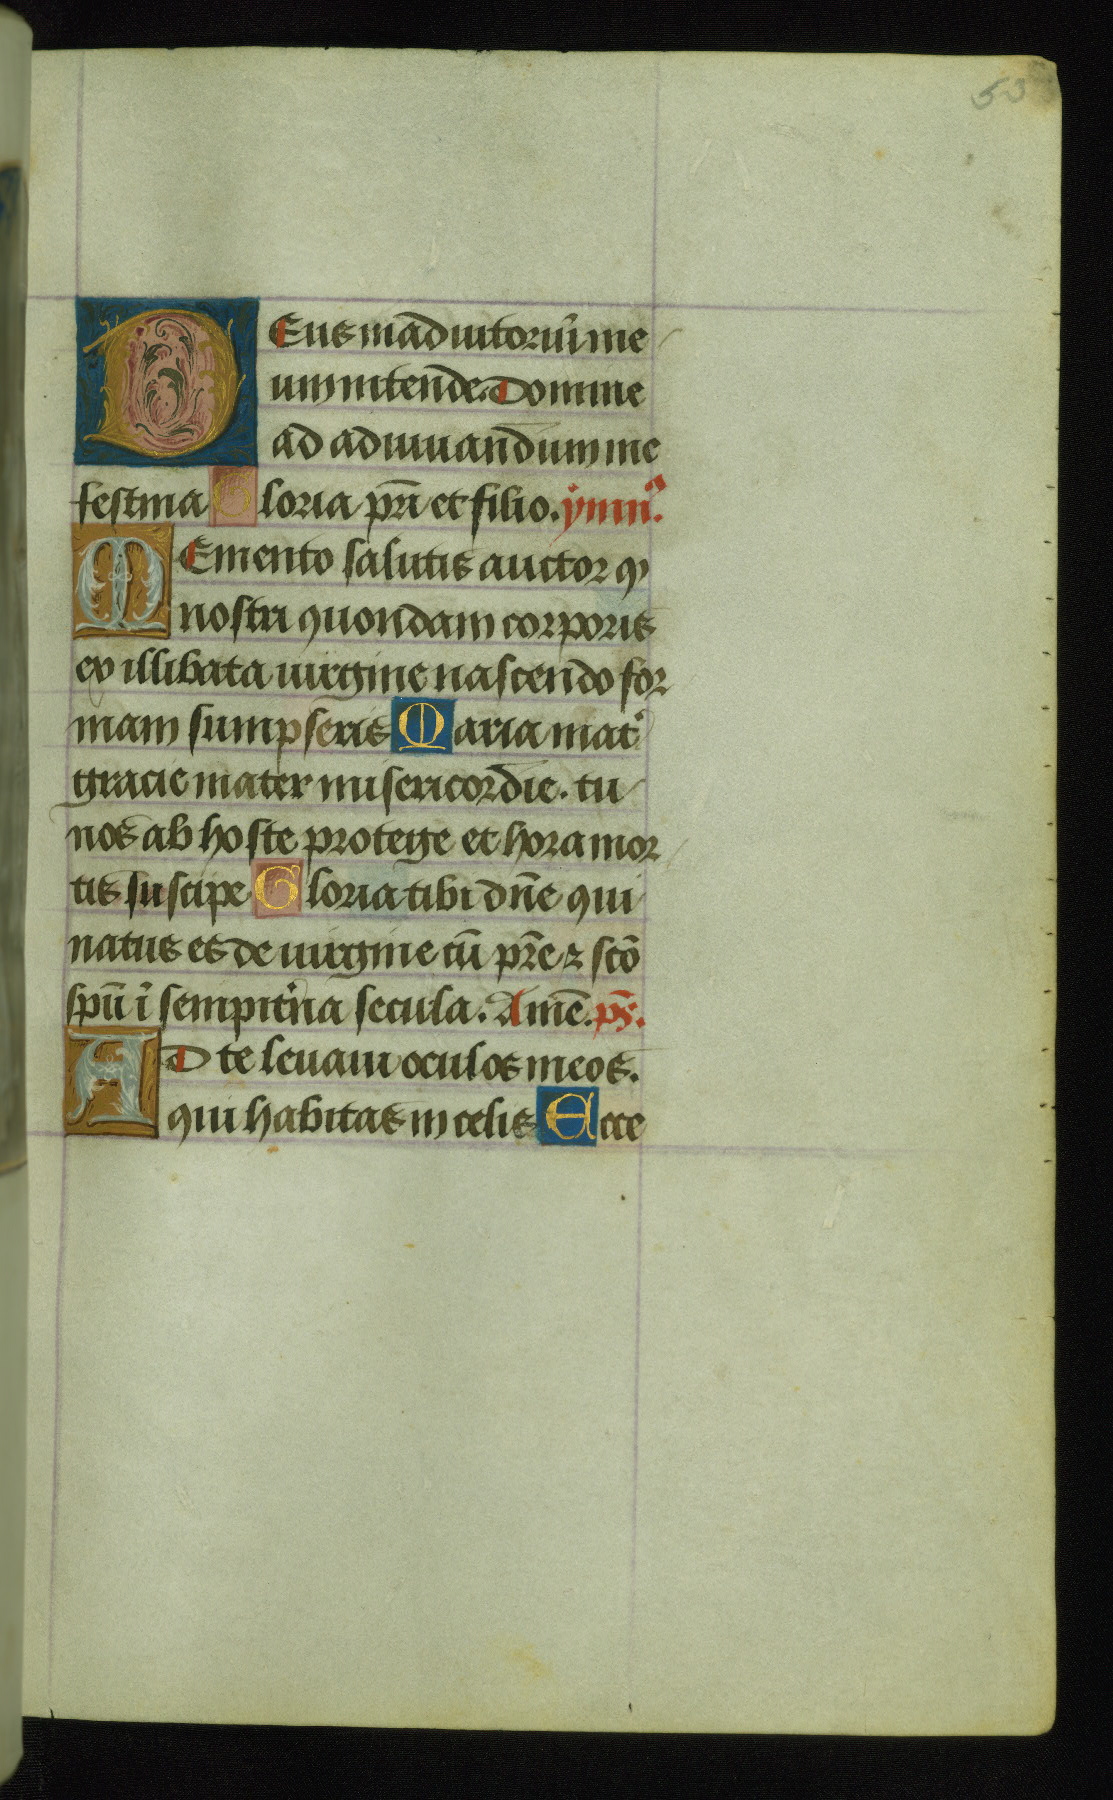 53
DEus in adiutoriū me
um intende. Domine
ad adiuuandum me
festina Gloria pr̄i et filio. ymn̄9.
MEmento salutis auctor q
nostri quondam corporis
ex illibata uirgine nascendo for
mam sumpseris Maria mat̉
gracie mater misericordie. tu
nos ab hoste protege et hora mor
tis suscipe Gloria tibi dn̄e qui
natus es de uirgine cū pr̄e ⁊ sc̄o
spū ī sempit̉na secula. Amē. ps̄.
AD te leuaui oculos meos.
qui habitas in celis Ecce